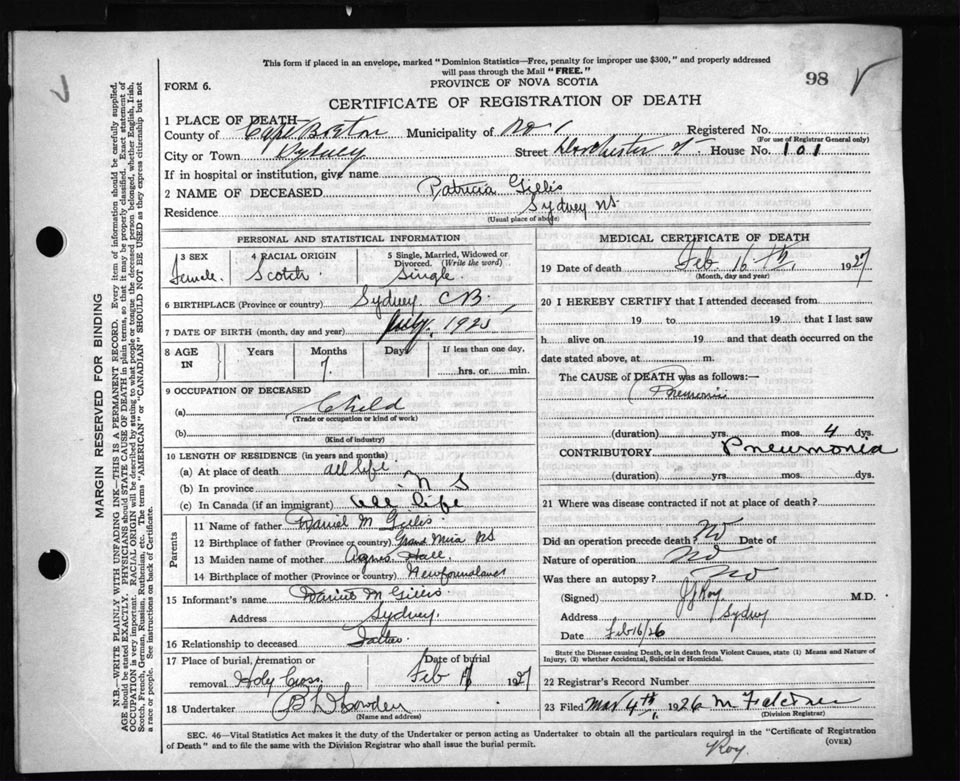 This form if placed in an envelope, marked "Dominion Statistics—Free, penalty for improper use $300," and properly addressed
will pass through the Mail "FREE."
98
FORM 6.
PROVINCE OF NOVA SCOTIA
CERTIFICATE OF REGISTRATION OF DEATH
1 PLACE OF DEATH—
County of Cape Breton Municipality of No 1 Registered No.
(For use of Registrar General only)
City or Town Sydney Street Dorchester St House No. 101
If in hospital or institution, give name
2 NAME OF DECEASED Patricia Gillis
Residence Sydney NS
(Usual place of abode)
PERSONAL AND STATISTICAL INFORMATION
3 SEX 4 RACIAL ORIGIN 5 Single, Married, Widowed or
Divorced. (Write the word)
Female Scotch Single
6 BIRTHPLACE (Province or country) Sydney C B
7 DATE OF BIRTH (month, day and year) July, 1925
8 AGE IN Years Months Days If less than one day,
7 hrs. or min.
9 OCCUPATION OF DECEASED
(a) Child
(Trade or occupation or kind of work)
(b)
(Kind of industry)
10 LENGTH OF RESIDENCE (in years and months)
(a) At place of death all life
(b) In province N S
(c) In Canada (if an immigrant) all life
Parents
11 Name of father Daniel M Gillis
12 Birthplace of father (Province or country) Grand Mira NS
13 Maiden name of mother Agnes Hall
14 Birthplace of mother (Province or country) Newfoundland
15 Informant's name Daniel M Gillis
Address Sydney
16 Relationship to deceased Father
17 Place of burial, cremation or Date of burial
removal Holy Cross Feb 1927
18 Undertaker
(Name and address)
MEDICAL CERTIFICATE OF DEATH
19 Date of death Feb. 16th, 1927
(Month, day and year)
20 I HEREBY CERTIFY that I attended deceased from
19 to 19 that I last saw
h alive on 19 and that death occurred on the
date stated above, at m.
The CAUSE of DEATH was as follows:—
Pneumonia
(duration) yrs. mos. 4 dys.
CONTRIBUTORY Pneumonia
(duration) yrs. mos. dys.
21 Where was disease contracted if not at place of death?
Did an operation precede death? No Date of
Nature of operation No
Was there an autopsy? No
(Signed) J J Roy M.D.
Address Sydney
Date Feb 16/26
State the Disease causing Death, or in death from Violent Causes, state (1) Means and Nature of
Injury, (2) whether Accidental, Suicidal or Homicidal.
22 Registrar's Record Number
23 Filed Mar 4th, 1926
(Division Registrar)
SEC. 46—Vital Statistics Act makes it the duty of the Undertaker or person acting as Undertaker to obtain all the particulars required in the "Certificate of Registration
of Death" and to file the same with the Division Registrar who shall issue the burial permit.
(OVER)
Roy
MARGIN RESERVED FOR BINDING
N.B.—WRITE PLAINLY WITH UNFADING INK—THIS IS A PERMANENT RECORD. Every item of information should be carefully supplied.
AGE should be stated EXACTLY. PHYSICIANS should STATE CAUSE OF DEATH in plain terms, so that it may be properly classified. Exact statement of
OCCUPATION is very important. RACIAL ORIGIN will be described by stating to what people or tongue the deceased person belonged, whether English, Irish,
Scotch, French, German, Russian, Ruthenian, etc. The terms "AMERICAN" or "CANADIAN" SHOULD NOT BE USED as they express citizenship but not
a race or people. See instructions on back of Certificate.